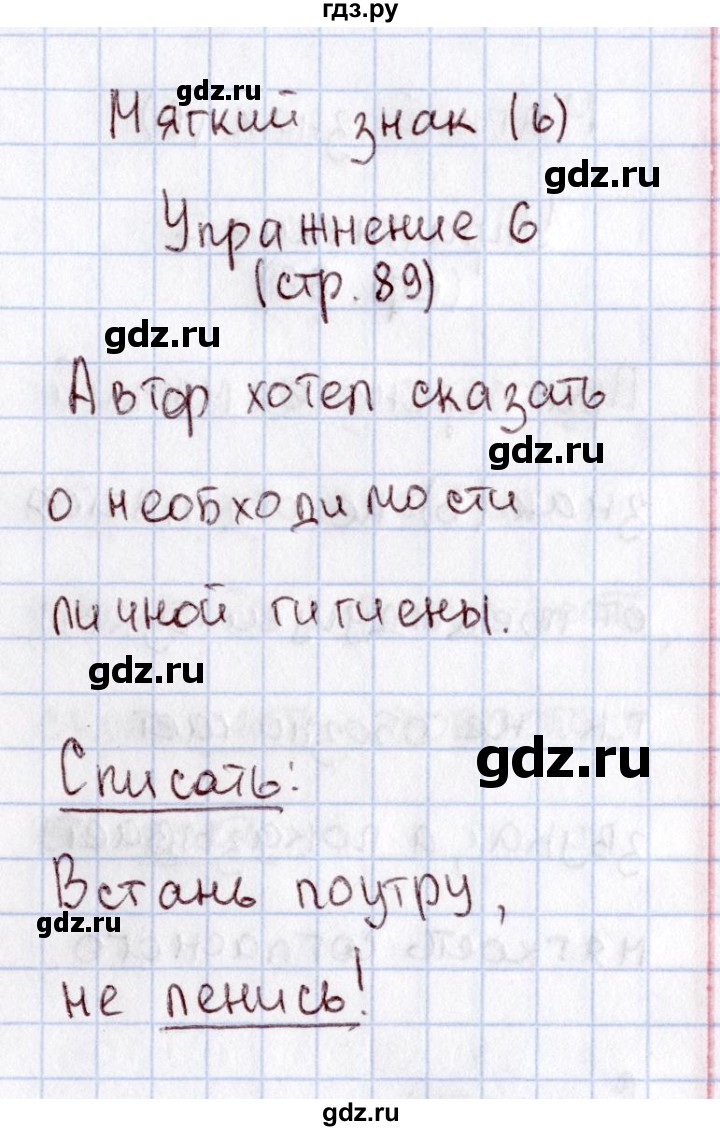 гдз.ру
gdz.ru
Мягкий знак (ь)
gdz.ru
Упражнение 6
(стр. 89)
gdz.ru
Автор хотел сказать
gdz.ru
о необходимости
личной гигиены.
gdz.ru
Списать:
gdz.ru
Встань поутру,
gdz.ru
не ленись!
gdz.ru